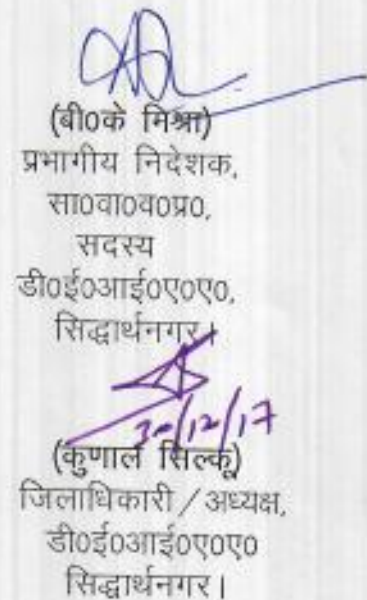 (बी0के मिश्रा)
प्रभागीय निदेशक,
सा0वा0व0प्र0,
सदस्य
डी0ई0आई0ए0ए0,
सिद्धार्थनगर।
30/12/17
(कुणाल सिल्कू)
जिलाधिकारी / अध्यक्ष,
डी0ई0आई0ए0ए0
सिद्धार्थनगर।